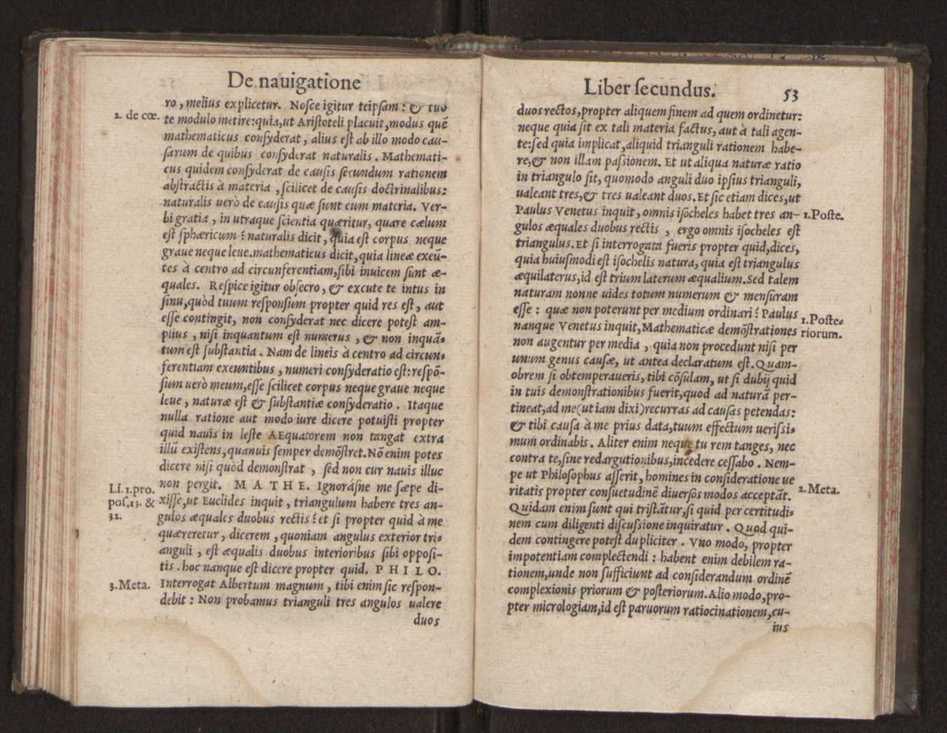 De nauigatione
ro, melius explicetur. Nosce igitur teipsam: & tuo
2. de cœ. te modulo metire: quia, ut Aristoteli placuit, modus quē
mathematicus consyderat, alius est ab illo modo cau-
sarum de quibus consyderat naturalis. Mathemati-
cus quidem consyderat de causis secundum rationem
abstractis à materia, scilicet de causis doctrinalibus:
naturalis uerò de causis quæ sunt cum materia. Ver-
bi gratia, in utraque scientia quæritur, quare cælum
est sphæricum? naturalis dicit, quia est corpus neque
graue neque leue. mathematicus dicit, quia lineæ exeū-
tes à centro ad circunferentiam, sibi inuicem sunt æ-
quales. Respice igitur obsecro, & excute te intus in
sinu, quòd tuum responsum propter quid res est, aut
esse contingit, non consyderat nec dicere potest am-
plius, nisi inquantum est numerus, & non inquā-
tum est substantia. Nam de lineis à centro ad circun-
ferentiam exeuntibus, numeri consyderatio est: respō-
sum uerò meum, esse scilicet corpus neque graue neque
leue, naturæ est & substantiæ consyderatio. Itaque
nulla ratione aut modo iure dicere potuisti propter
quid nauis in leste AEquatorem non tangat extra
illū existens, quanuis semper demōstret. Nō enim potes
dicere nisi quòd demonstrat, sed non cur nauis illuc
non pergit. MATHE. Ignorásne me sæpe di-
Li. 1. pro. xisse, ut Euclides inquit, triangulum habere tres an-
pos. 13. & gulos æquales duobus rectis? et si propter quid à me
32. quæreretur, dicerem, quoniam angulus exterior tri-
anguli, est æqualis duobus interioribus sibi opposi-
tis. hoc nanque est dicere propter quid. PHILO.
3. Meta. Interrogat Albertum magnum, tibi enim sic respon-
debit: Non probamus trianguli tres angulos ualere
duos
Liber secundus. 53
duos rectos, propter aliquem finem ad quem ordinetur:
neque quia sit ex tali materia factus, aut à tali agen-
te: sed quia implicat, aliquid trianguli rationem habe-
re, & non illam passionem. Et ut aliqua naturæ ratio
in triangulo sit, quomodo anguli duo ipsius trianguli,
ualeant tres, & tres ualeant duos. Et sic etiam dices, ut
Paulus Venetus inquit, omnis isocheles habet tres an- 1. Poste.
gulos æquales duobus rectis, ergo omnis isocheles est
triangulus. Et si interrogata fueris propter quid, dices,
quia huiusmodi est isochelis natura, quia est triangulus
æquilaterus, id est trium laterum æqualium. Sed talem
naturam nonne uides totum numerum & mensuram
esse: quæ non poterunt per medium ordinari? Paulus 1. Poste-
nanque Venetus inquit, Mathematicæ demōstrationes riorum.
non augentur per media, quia non procedunt nisi per
unum genus causæ, ut antea declaratum est. Quam-
obrem si obtemperaueris, tibi cōsulam, ut si dubij quid
in tuis demonstrationibus fuerit, quod ad naturā per-
tineat, ad me (ut iam dixi) recurras ad causas petendas:
& tibi causa à me prius data, tuum effectum uerissi-
mum ordinabis. Aliter enim neque tu rem tanges, nec
contra te, sine redargutionibus, incedere cessabo. Nem-
pe ut Philosophus asserit, homines in consideratione ue
ritatis propter consuetudinē diuersos modos acceptāt. 2. Meta.
Quidam enim sunt qui tristātur, si quid per certitudi-
nem cum diligenti discussione inquiratur. Quod qui-
dem contingere potest dupliciter. Vno modo, propter
impotentiam complectendi: habent enim debilem ra-
tionem, unde non sufficiunt ad considerandum ordinē
complexionis priorum & posteriorum. Alio modo, pro-
pter micrologiam, id est paruorum ratiocinationem, cu-
ius